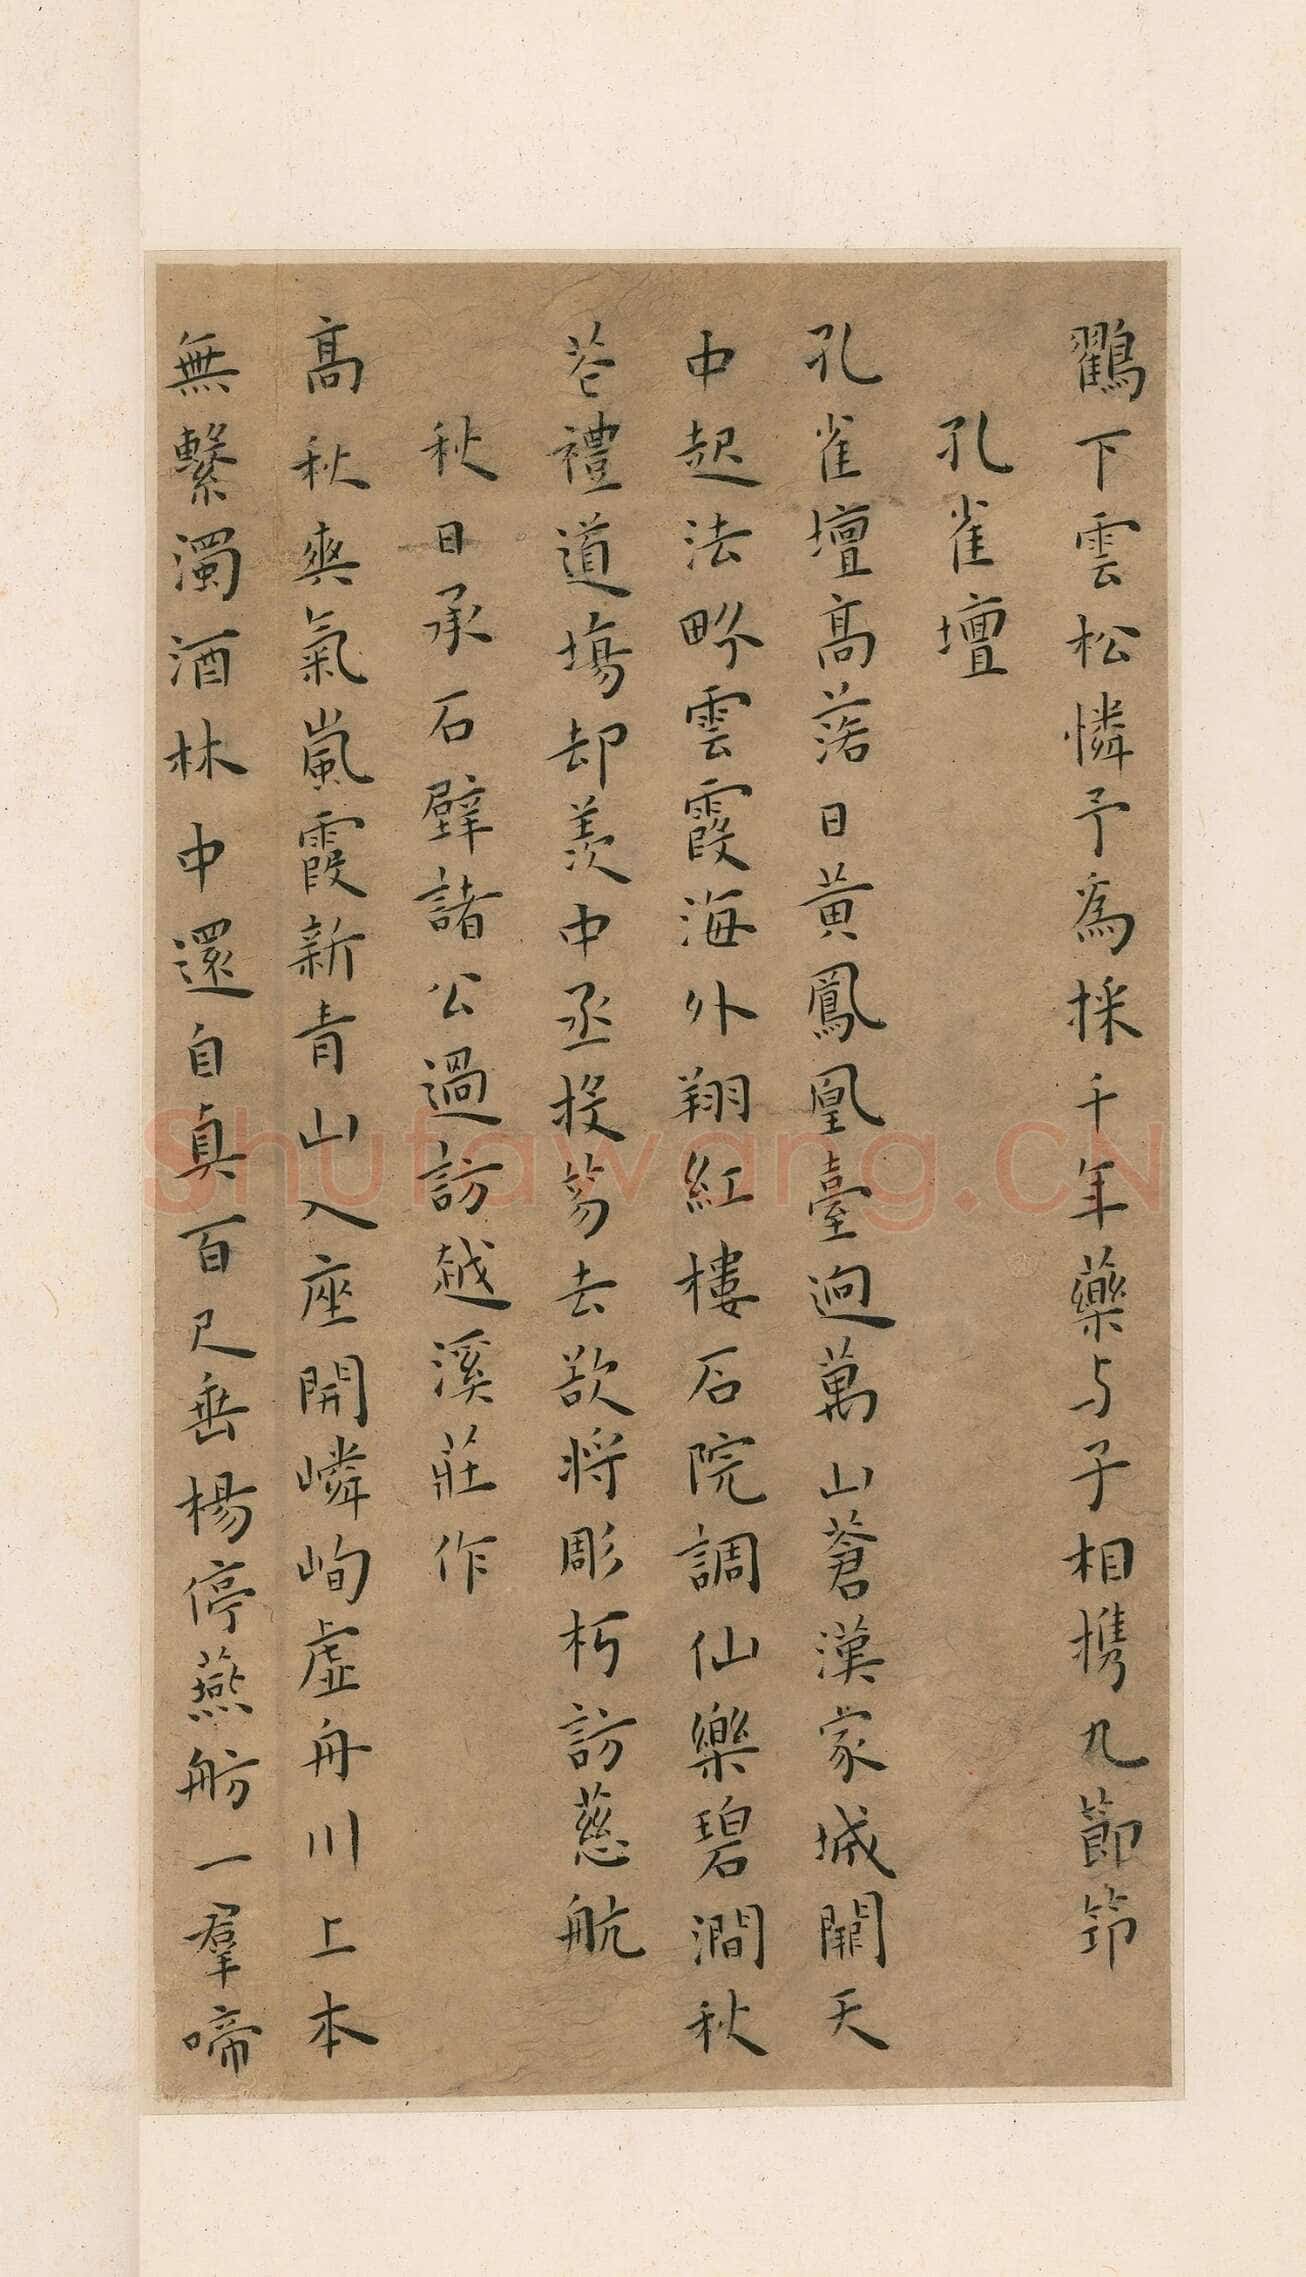 鸛下雲松憐予為採千年藥与子相携九節笻
孔雀壇
孔雀壇高落日黄鳳凰臺迥萬山蒼漢家城闕天
中起法界雲霞海外翔紅樓石院調仙樂碧澗秋
苍禮道場却羡中丞投笏去欲将彫朽訪慈航
秋日承石壁諸公過訪越溪莊作
高秋爽氣嵐霞新青山入座開嶙峋虛舟川上本
無繫濁酒林中還自真百尺垂楊停燕舫一羣啼
Shufawang.CN